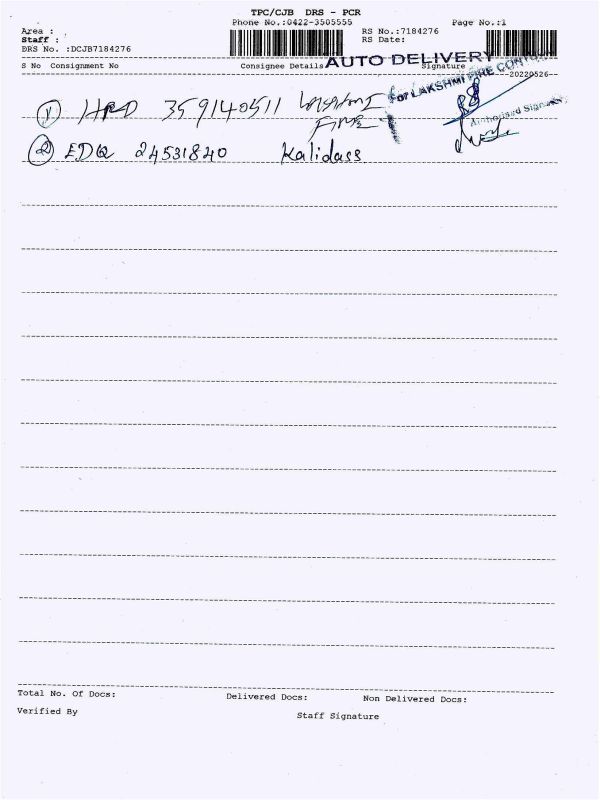 TPC/CJB DRS - PCR
Phone No.:0422-3505555 Page No.:1
Area :
Staff :
DRS No. :DCJB7184276
RS No.:7184276
RS Date:
AUTO DELIVERY
S No Consignment No Consignee Details Signature
For LAKSHMI FIRE
--20220526--
Authorised
1 HRD 359140511
FIRE
2 EDQ 24531840 Kalidass
Total No. Of Docs: Delivered Docs: Non Delivered Docs:
Verified By Staff Signature